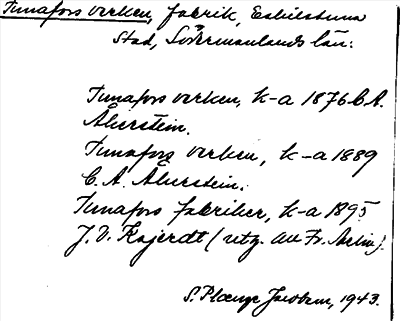 Tunafors verken, fabrik, Eskilstuna
Stad, Södermanlands län:
Tunafors verken, k-a 1876 C.A.
Åkerstein.
Tunafors verken, k-a 1889
C. A. Åkerstein.
Tunafors fabriker, k-a 1895
J. V. (utg. av Fr.
S. 1943.